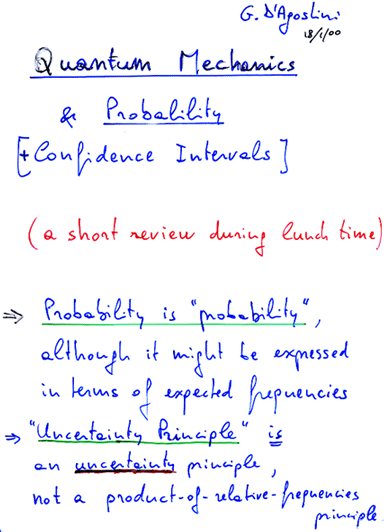 G. D'Agostini
18/1/00
Quantum Mechanics
& Probability
[+ Confidence Intervals]
(a short review during lunch time)
⇒ Probability is "probability",
although it might be expressed
in terms of expected frequencies
⇒ "Uncertainty Principle" is
an uncertainty principle,
not a product-of-relative-frequencies
principle.